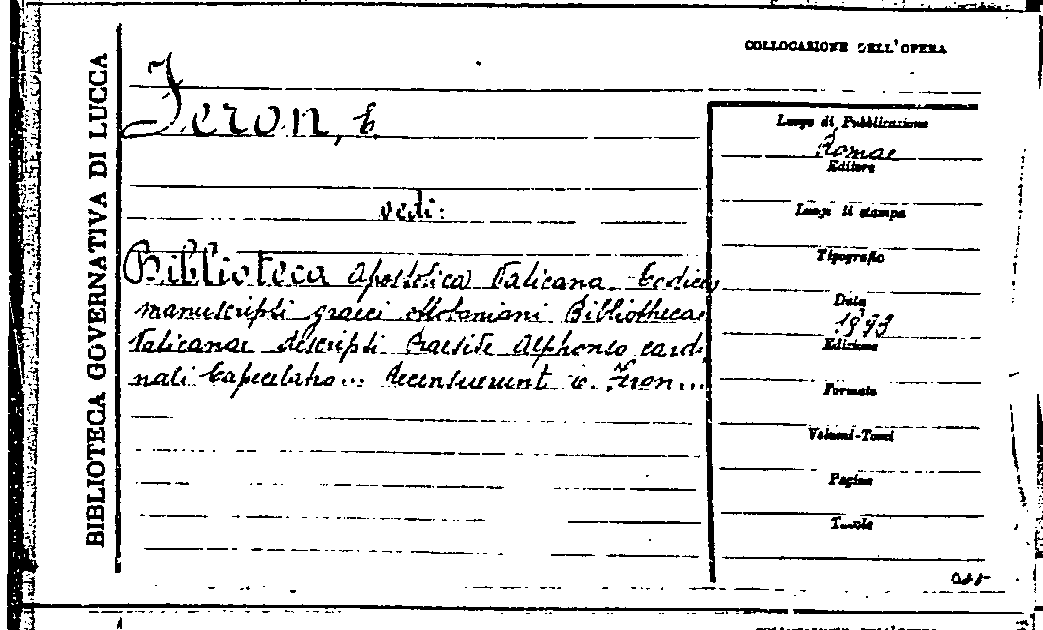 BIBLIOTECA GOVERNATIVA DI LUCCA
COLLOCAZIONE DELL'OPERA
Feron, E.
vedi:
Biblioteca Apostolica Vaticana. Codices
manuscripti graeci ottoboniani Bibliothecae
Vaticanae descripti Praeside Alphonso cardi-
nali Capecelatro... recensuerunt E. Feron...
Luogo di Pubblicazione
Romae
Editore
Luogo di stampa
Tipografio
Data
1893
Edizione
Formato
Volumi-Tomi
Pagine
Tavole